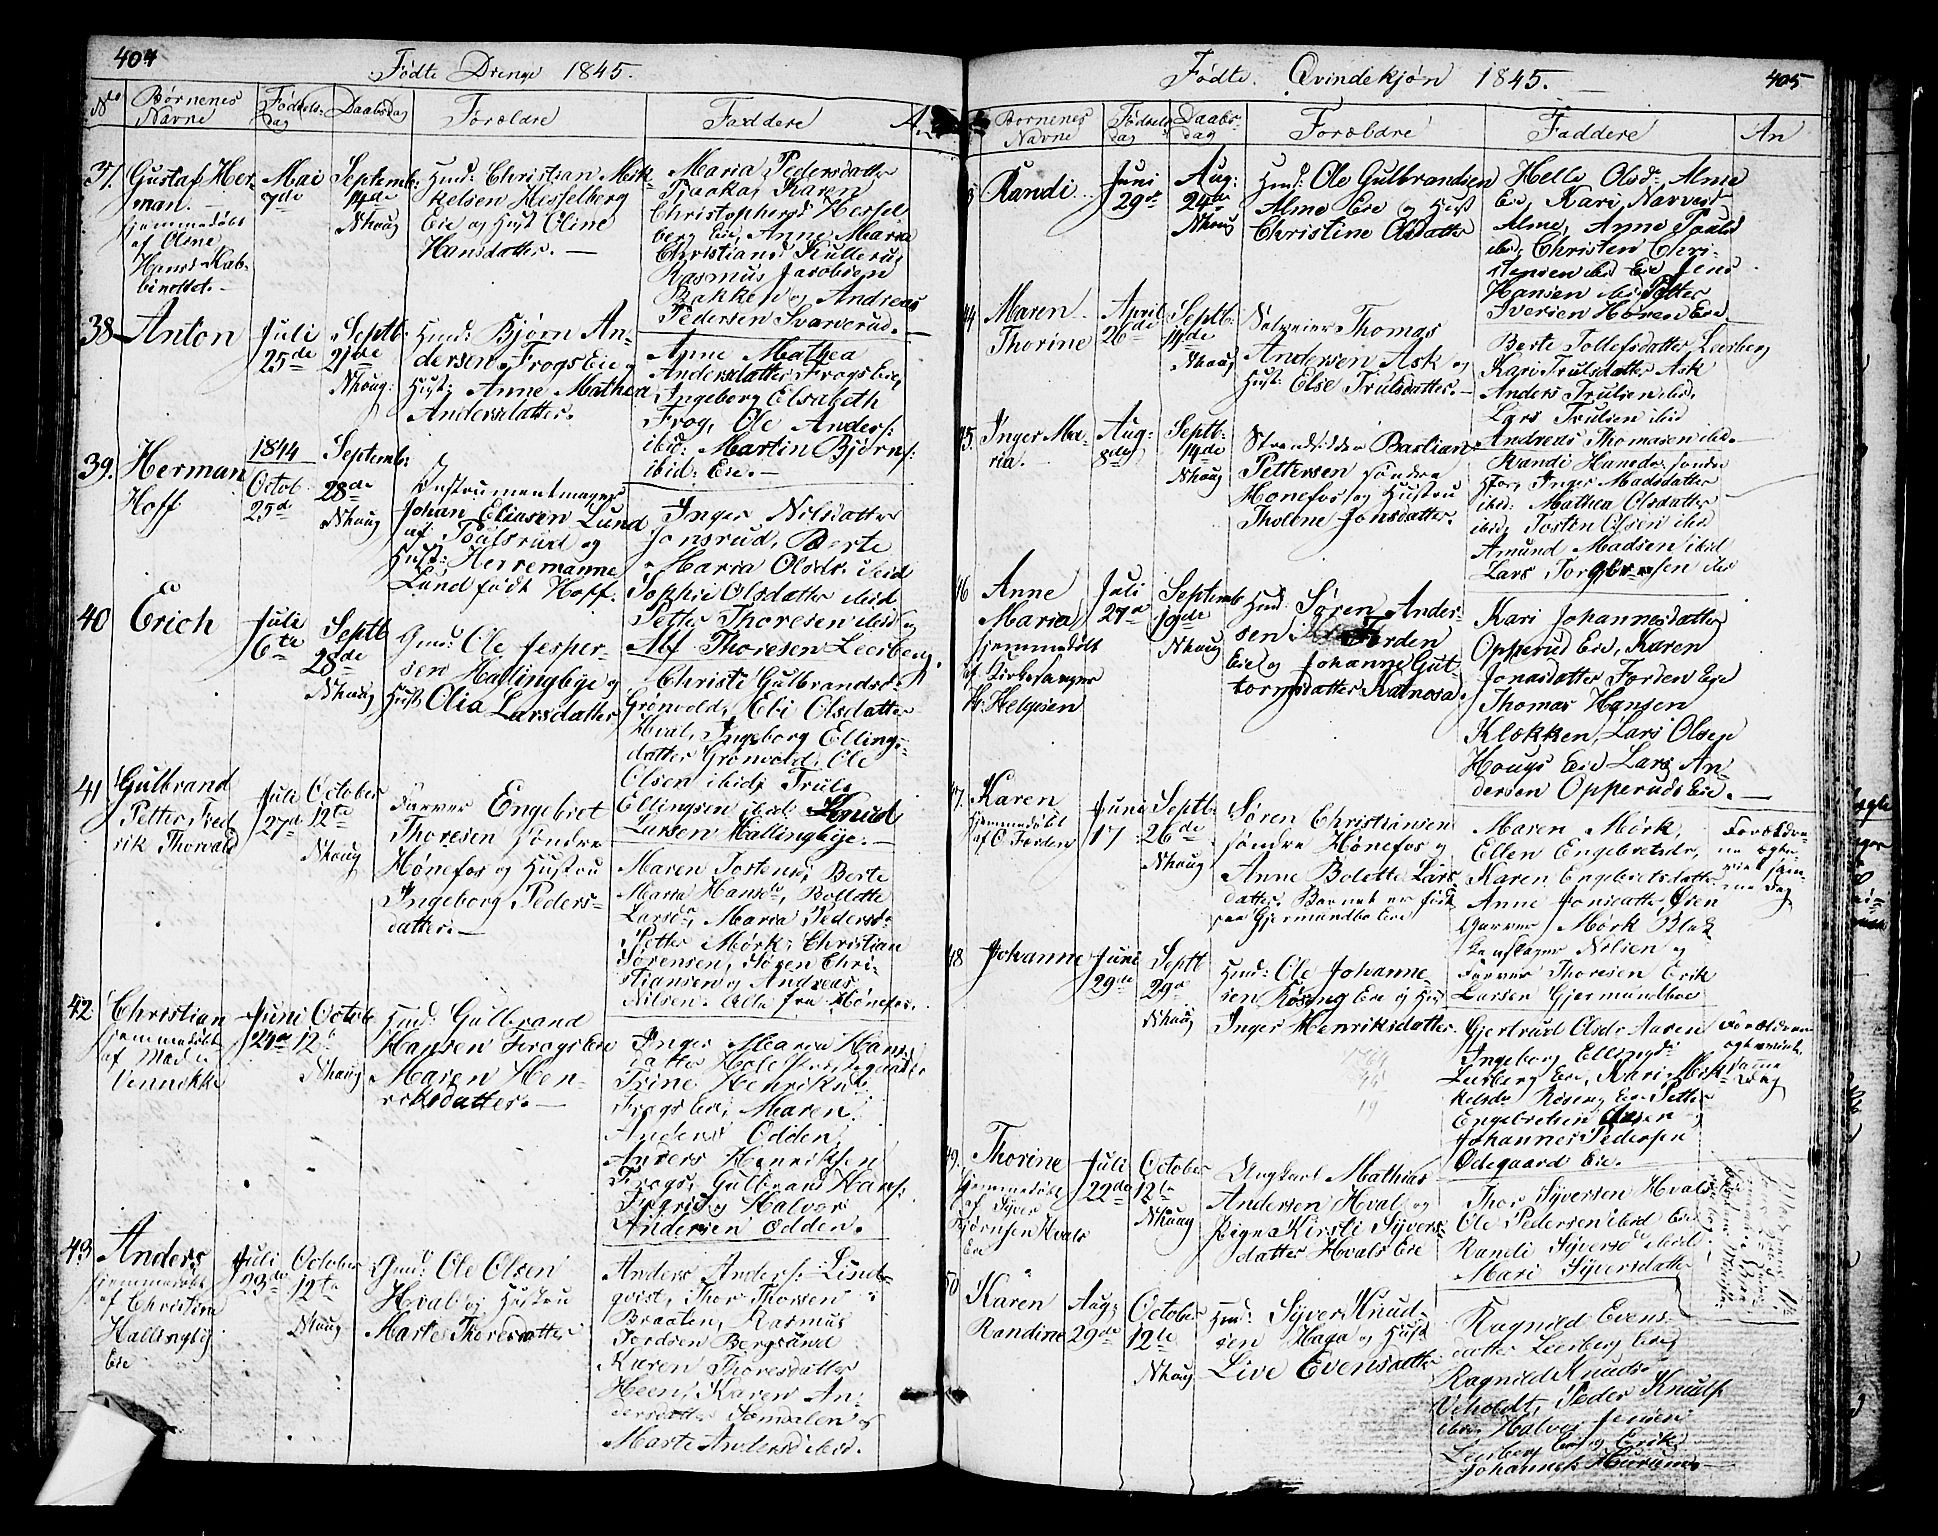 404
Fødte Drenge 1845.
No
Børnenes Navne
Fødsels-dag
Daabsdag
Forældre
Faddere
37.
Gustaf Her-
man.
hjemmedøbt
af Olme
Mai
7de
Septemb:
14de
Nhoug
Gmd: Christian Mik-
kelsen Hesselberg
Eie og Hust Oline
Hansdatter. —
Maria Pedersdatter
Karen
Christophersd Hessel
berg Eie, Anne Maria
Christiansd Kullerud
Rasmus Jacobsen
Bakken og Andreas
Pedersen Svarverud. —
38
Anton
Juli
25de
Septb
21de
Nhoug:
Gmd: Bjørn An-
dersen Frogs Eie og
Hust: Anne Mathea
Andersdatter.
Anne Mathea
Andersdatter Frogs Eie,
Ingeborg Elsabeth
Frog, Ole Anders:
ibid: Martin Bjørns:
ibid: Eie. —
39.
Herman
Hoff
1844
Octob
25d
Septemb:
28de
Nhoug
Instrumentmager
Johan Eliasen Lund
af Poulsrud og
Hust: Herremanne
Lund født Hoff.
Inger Nilsdatter
Jonsrud, Berte
Maria Olsdr. ibid
Sophie Olsdatter ibid
Petter Thoresen ibid og
Alf Thoresen Leerberg.
40
Erich
Juli
6te
Septb
28de
Nhoug
Gmd: Ole Jesper-
sen Hallingbye og
Hust Olia Larsdatter
Christi Gulbrandsd.
Grønvold, Ebi Olsdatter
Hval, Ingeborg Ellings-
datter Grønvold, Ole
Olsen ibid, Truls
Ellingsen ibid: Knud
Larsen Hallingbye. —
41
Gulbrand
Petter Fred
rik Thorvald
Juli
27d
October
12te
Nhoug
Farver Engebret
Thoresen søndre
Hønefos og Hustru
Ingeborg Peders-
datter. —
Maren Tostens, Berte
Maria Hansd, Bollette
Larsd, Maria Pedersd
Petter Mørk, Christian
Sørensen, Søren Chri-
stiansen og Andreas
Nilsen. Alle fra Hønefos.
42
Christian
hjemmedøbt
af Mad.
Vennikke
Juni
24de
Octob
12
Nhoug
Gmd: Gulbrand
Hansen Frogs Eie
Maren Hen-
riksdatter. —
Inger Maria Hans
datter Hole Præstegaard
Trine Henriksd
Frogs Eie, Maren
Andersd Odden,
Anders Henriksen
Frogs, Gulbrand Hans:
Halvor
Andersen Odden.
43
Anders
hjemmedøbt
af Christine
Hallingby
Eie
Juli
23de
October
12te
Nhoug
Gmd: Ole Olsen
Hval og Hustru
Marte Thoresdatter
Anders Anders: Lind-
qvist, Thor Thorsen
Braaten, Rasmus
Bergsund
Karen Thoresdatter
Heen, Karen An-
dersdatter Somdalen og
Marte Andersd ibid.
405
Fødte Qvindekjøn 1845. —
Børnenes Navne
Fødsels dag
Daabs-dag
Forældre
Faddere
An
Randi
Juni
29de
Aug:
24de
Nhoug
Gmd: Ole Gulbrandsen
Alme Eie og Hust
Christine Olsdatter
Helle Olsd: Alme
Eie, Kari Narvesd
Alme, Anne Paulsd
ibid, Christen Chri-
stensen ibid Eie Jens
Hansen ibid Petter
Iversen Høren Eie
44
Maren
Thorine
April
26de
Septb:
14de
Nhoug
Selveier Thomas
Andersen Ask og
Hust: Else Trulsdatter. —
Berte Tollefsdatter Leerberg
Kari Trulsdatter Ask
Anders Trulsen ibid.
Lars Trulsen ibid
Andreas Thomasen ibid. —
45.
Inger Ma-
ria.
Aug:
8de
Septb:
14de
Nhoug
Strandsidder Bastian
Pettersen søndre
Hønefos og Hustru
Tholene Jonsdatter.
Randi Hansdr. søndre
Hfos, Inger Madsdatter
ibid: Mathea Olsdatter
ibid, Tosten Olsen ibid
Amund Madsen ibid
Lars Torgersen ibid
46
Anne
Maria
hjemmedøbt
af Kirkesanger
H. Helgesen
Juli
27de
Septemb
19de
Nhoug
Gmd: Søren Ander-
sen Færden
Eie og Johanne Gut-
tormsdatter Katnosa.
Kari Johannesdatter
Opperud Eie, Karen
Jonasdatter Færden Eie
Thomas Hansen
Klækken, Lars Olsen
Hougs Eie Lars An-
dersen Opperuds Eie. —
47.
Karen
hjemmedøbt
af O. Færden
Juni
17
Septb:
26de
Nhoug
Søren Christiansen
søndre Hønefos og
Anne Bolette Lars
datter, Barnet er født
paa Gjermundbo Eie
Maren Mørk,
Ellen Engebretsdr,
Karen Engebretsdatter
Anne Jonsdatter Øren
Garver Mørk Blik
kenslager Nilsen og
Farver Thoresen Erik
Larsen Gjermundboe
Forældre-
ne egte-
viet sam-
me Dag
48
Johanne
Juni
29de
Septb
29de
Nhoug
Gmd: Ole Johanne-
sen Røsing Eie og Hust
Inger Henriksdatter
Gjertrud Olsdr Aaren
Ingeborg Ellingsdr
Leerberg Eie, Kari Mik-
kelsdr Røsing Eie Petter
Engebretsen Aasen
Johannes Pedersen
Ødegaard Eie. —
Forældrene
egteviet
samme
Dag
49.
Thorine
hjemmedøbt
af Syver
Bjørnsen Hvals
Eie
Juli
22de
October
12te
Nhoug
Ungkarl Mathias
Andersen Hval og
Pigen Kirsti Syvers
datter Hvals Eie
Thor Syversen Hvals
Ole Pedersen ibid Eie
Randi Syversd ibid
Mari Syversdatter
50
Karen
Randine
Aug:
29de
October
12te
Nhoug
Gmd: Syver Knud-
sen Haga og Hust
Live Evensdatter
Ragnild Evens-
datter Leerberg Eie,
Ragnild Knuds
Veholdt, Peder Knuds
ibid, Halvor Jensen
Leerberg Eie og Erik
Johannes: Hurum